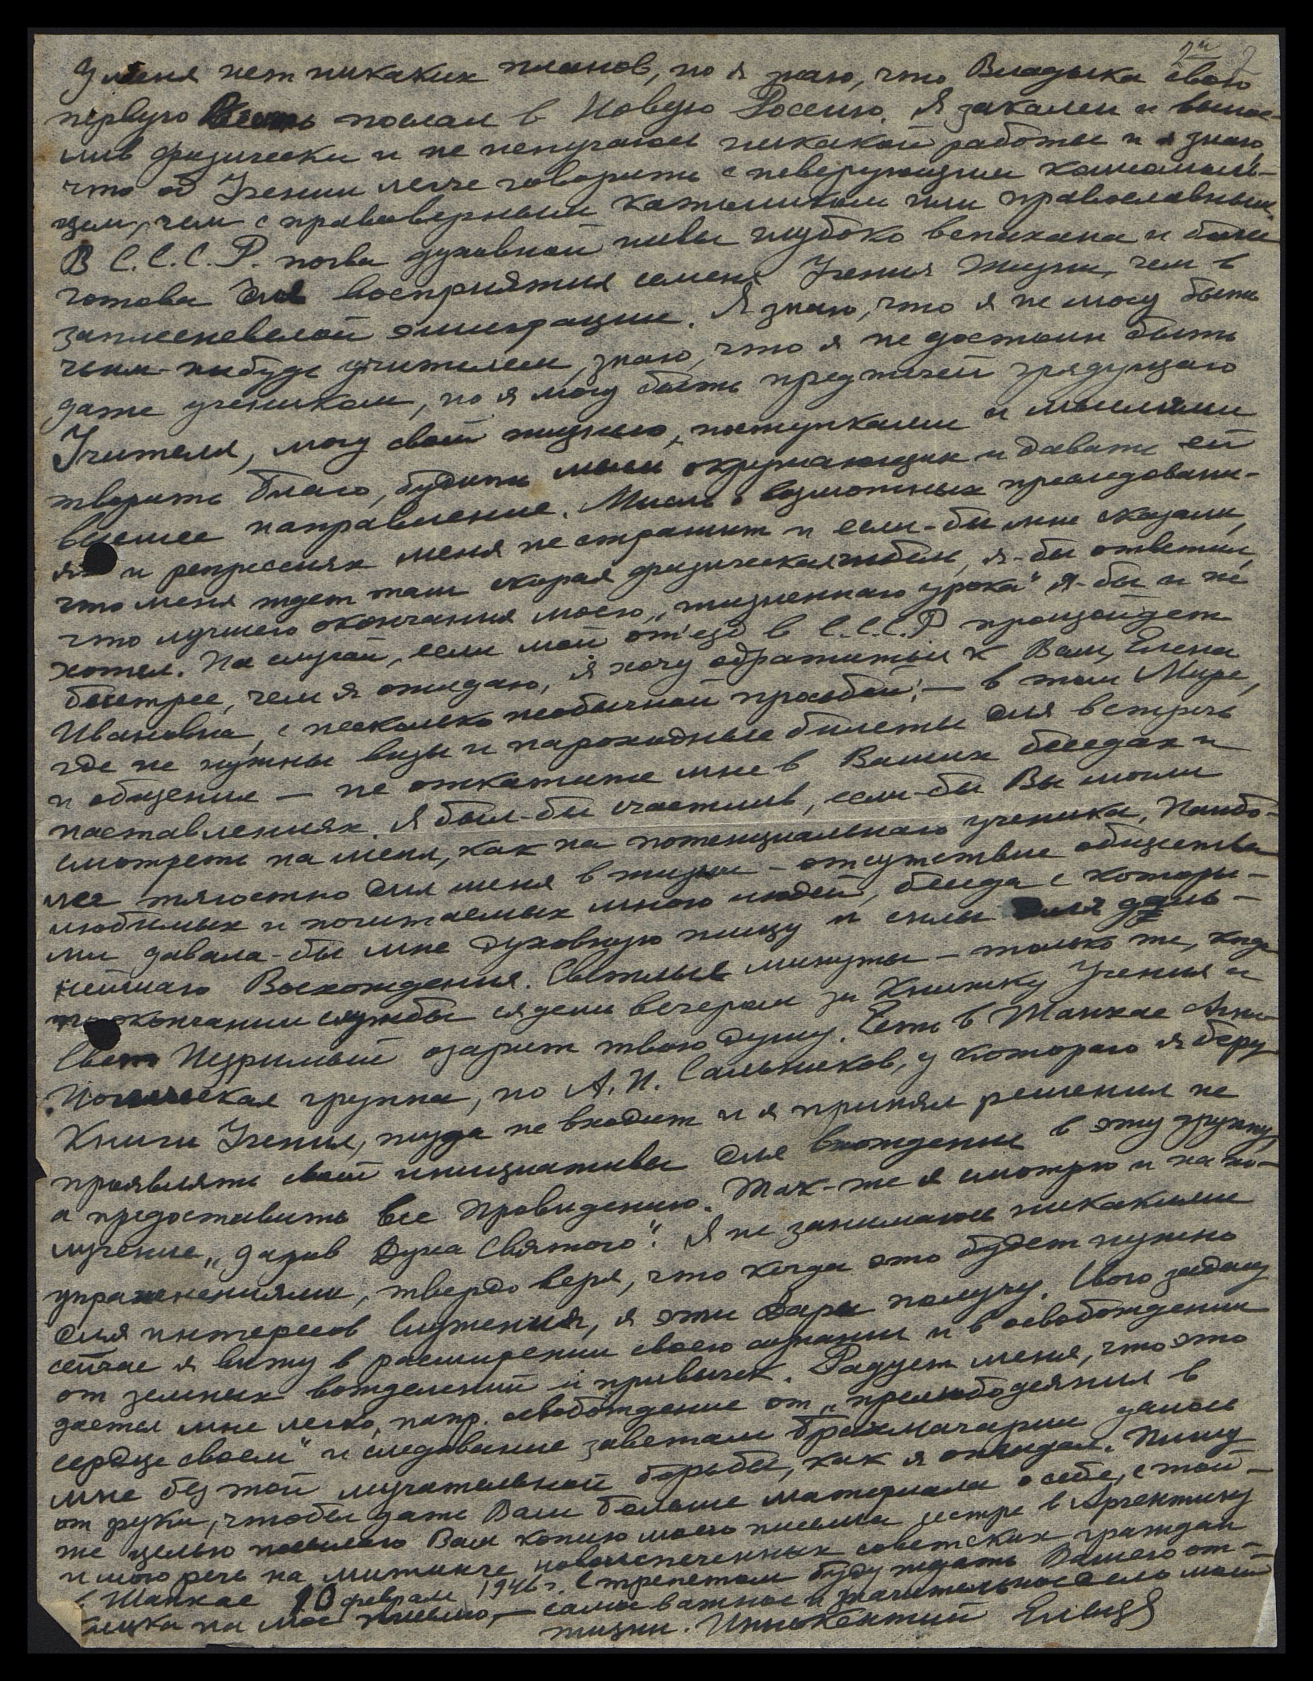 2й 2
У меня нет никаких планов, но я знаю, что Владыка свою
первую Весть послал в Новую Россию. Я закален и вынос-
лив физически и не пугаюсь никакой работы и я знаю,
что об Учении легче говорить с неверующим комсомоль-
цем, чем с правоверным католиком или православным.
В С.С.С.Р. почва духовной нивы глубоко вспахана и более
готова для восприятия семени Учения Жизни, чем в
заплесневелой эмиграции. Я знаю, что я не могу быть
чьим-нибудь учителем, знаю, что я не достоин быть
даже учеником, но я могу быть предтечей грядущаго
Учителя, могу свой жизнью, поступками и мыслями
творить благо, будить мысли окружающих и давать ей
высшее направление. Мысль о возможных преследовани-
ях и репрессиях меня не страшит и если-бы мне сказали,
что меня ждет там скорая физическая гибель, я-бы ответил,
что лучшего окончания моего „жизненнаго урока" я-бы и не
хотел. На случай, если мой от'езд в С.С.С.Р произойдет
быстрее, чем я ожидаю, я хочу обратиться к Вам, Елена
Ивановна, с несколько необычной просьбой: — в том Мире,
где не нужны визы и пароходные билеты для встреч
и общения — не откажите мне в Ваших беседах и
наставлениях. Я был-бы счастлив, если-бы Вы могли
смотреть на меня, как на потенциальнаго ученика. Наибо-
лее тягостно для меня в жизни – отсутствие общества
любимых и почитаемых мною людей, беседа с которы-
ми давала-бы мне духовную пищу и силы для даль-
нейшаго Восхождения. Светлые минуты – только те, когда
по окончании службы сядешь вечером за Книжку Учения и
Свет Незримый озарит твою душу. Есть в Шанхае Агни-
Йогическая группа, но А.П. Сальников, у котораго я беру
Книги Учения, туда не входит и я принял решения не
проявлять свой инициативы для вхождения в эту группу,
а предоставить все Провидению. Так-же я смотрю и на по-
лучение „даров Духа Святого". Я не занимаюсь никакими
упражнениями, твердо веря, что когда это будет нужно
для интересов Служения, я эти дары получу. Свою задачу
сейчас я вижу в расширении своего сознания и в освобождении
от земных вожделений и привычек. Радует меня, что это
дается мне легко, напр. освобождение от „прелюбодеяния в
сердце своем" и следование заветам Брахмачарии далось
мне без той мучительной борьбы, как я ожидал. Пишу
от руки, чтобы дать Вам больше материала о себе, с той-
же целью посылаю Вам копию моего письма сестре в Аргентину
и мою речь на митинге новоиспеченных советских граждан
в Шанхае 10 февраля 1946 г. С трепетом буду ждать Вашего от-
клика на мое письмо, – самое важное и значительное дело моей
жизни. Иннокентий Елы